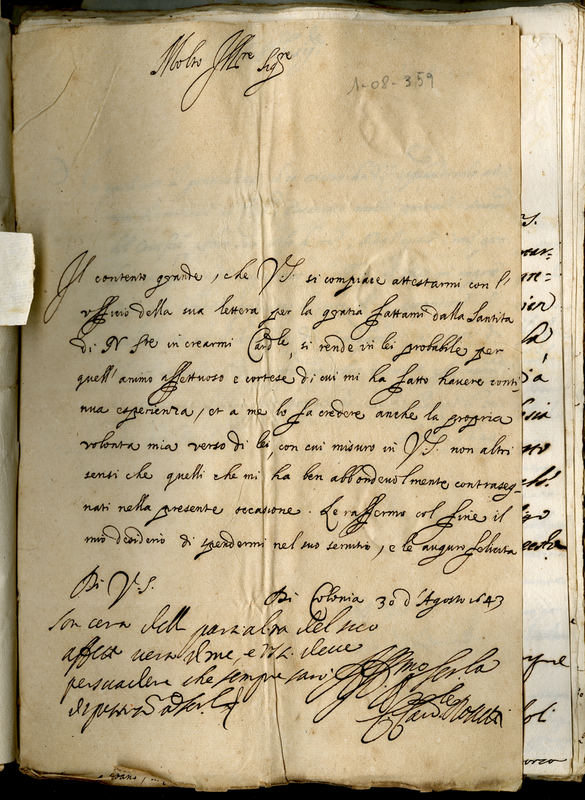 Molto Ill.re Sig.re
1-08-359
Il contento grande, che V.S. si compiace attestarmi con l'
uffitio della sua lettera per la gratia fattami dalla Santità
di N. S.re in crearmi Card.le, si rende in lei probabile per
quell'animo affettuoso e cortese di cui mi ha fatto havere conti
nua esperienza, et a me lo fa credere anche la propria
volontà mia verso di lei, con cui misuro in V.S. non altri
sensi che quelli che mi ha ben abbondevolmente contraseg-
nati nella presente occasione. Le raffermo col fine il
mio desiderio di spendermi nel suo servitio, e le auguro felicità
Di V.S.
Di Colonia 30 d'Agosto 1643
son certo dell
affetto verso di me, e V.S. deve
persuadere che sempre sarò
Il Card.le Rossetti